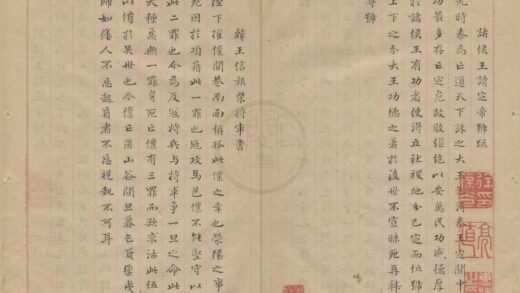 諸侯王請定帝號疏
先時秦為亡道天下誅之大王先得秦王定關中
功最多存亡定危救敗繼絕以安萬民功盛德厚
於諸侯王有功者使得立社稷地分已定而位號
上下之分大王功德之著於後世不宣昧死再拜
尊號
韓王信報柴將軍書
陛下擢僕閭巷南面稱孤此僕之幸也滎陽之事
死囚於項籍此一罪也寇攻馬邑僕不能堅守以
此二罪也今為反寇將兵與將軍爭一旦之命此
大種蠡無一罪身死亡僕有三罪而欲求活此伍
以僨於吳世也今僕亡匿山谷間旦暮乞貸蠻夷
歸如痿人不忘起盲者不忘視勢不可耳